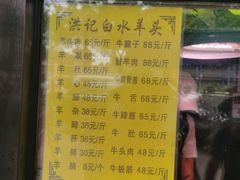 洪记白水羊头
羊头肉 65元/斤 牛腱子 68元/斤
羊 65元/斤 羊肉 88元/斤
羊 肚 65元/斤 牛 65元/斤
羊 心 45元/斤 骨筋 68元/斤
羊 48元/斤 牛 舌 68元/斤
羊 杂 38元/斤 牛蹄筋 65元/斤
羊 蹄 38元/斤 牛 肚 65元/斤
羊 肝 36元/斤 牛头肉 48元/斤
羊 肠 30元/斤 牛板筋 48元/斤
羊 脑 8元/个